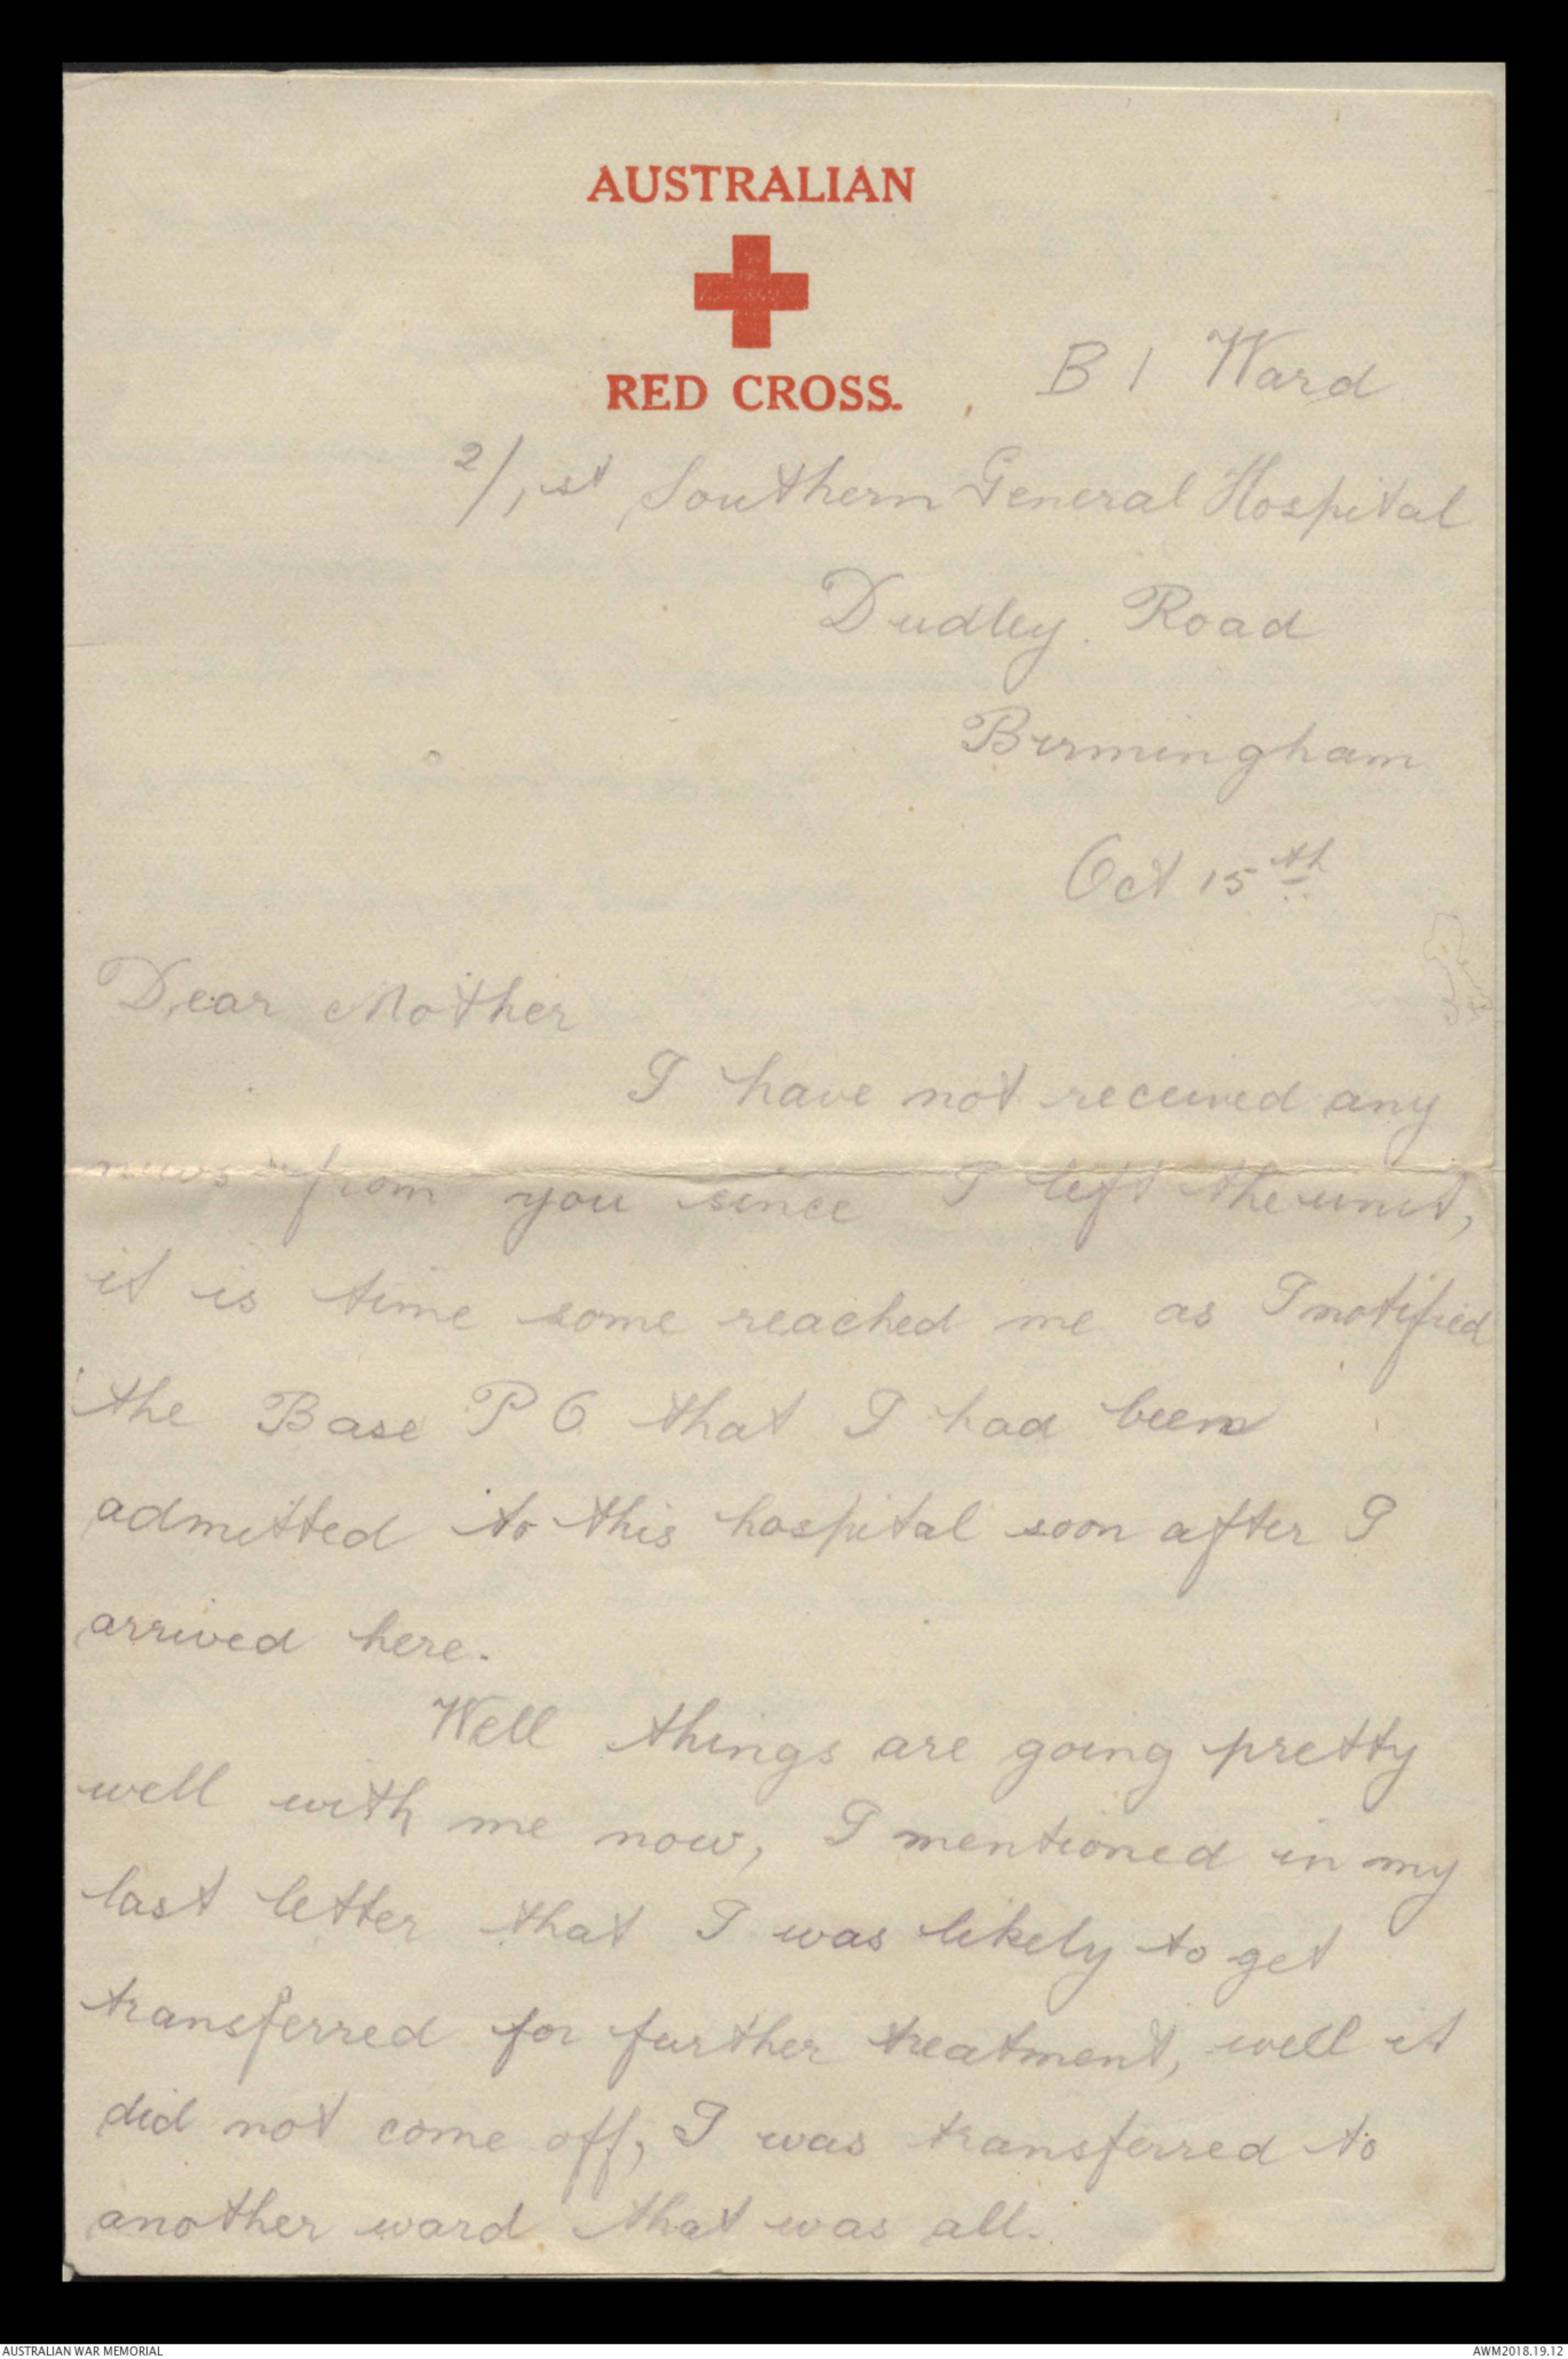 AUSTRALIAN
RED CROSS.
B 1 Ward
2/1st Southern General Hospital
Dudley Road
Birmingham
Oct 15th
Dear Mother
I have not received any
news from you since I left the unit,
it is time some reached me as I notified
the Base P O that I had been
admitted to this hospital soon after I
arrived here.
Well things are going pretty
well with me now, I mentioned in my
last letter that I was likely to get
transferred for further treatment, well it
did not come off, I was transferred to
another ward that was all.
AUSTRALIAN WAR MEMORIAL
AWM2018.19.12